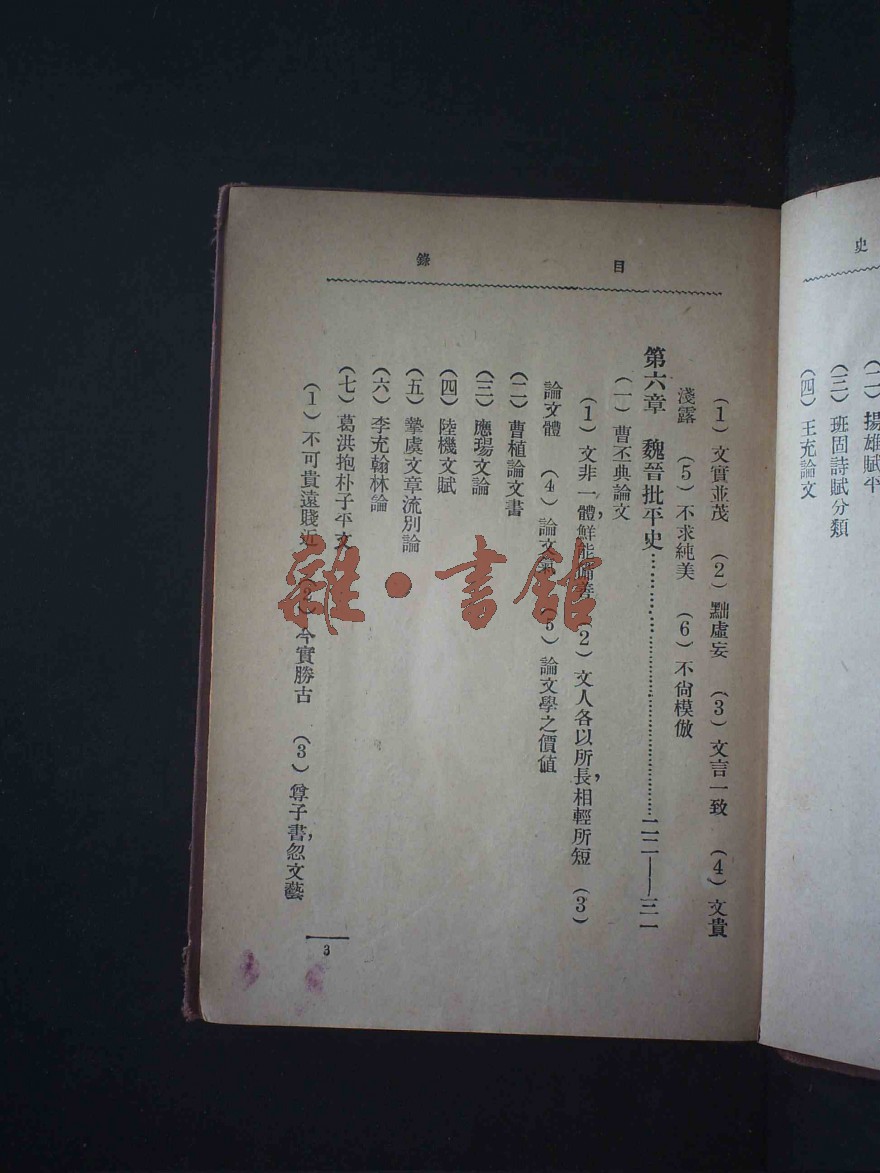 史
(二) 揚雄賦平
(三) 班固詩賦分類
(四) 王充論文
目錄
(1) 文實並茂 (2) 黜虛妄 (3) 文言一致 (4) 文貴
淺露 (5) 不求純美 (6) 不尙模倣
第六章 魏晉批平史……二二——三一
(一) 曹丕典論文
(1) 文非一體，鮮能備善 (2) 文人各以所長，相輕所短 (3)
論文體 (4) 論文氣 (5) 論文學之價値
(二) 曹植論文書
(三) 應瑒文論
(四) 陸機文賦
(五) 摯虞文章流別論
(六) 李充翰林論
(七) 葛洪抱朴子平文
(1) 不可貴遠賤近 (2) 今實勝古 (3) 尊子書，忽文藝
3
雜·書館